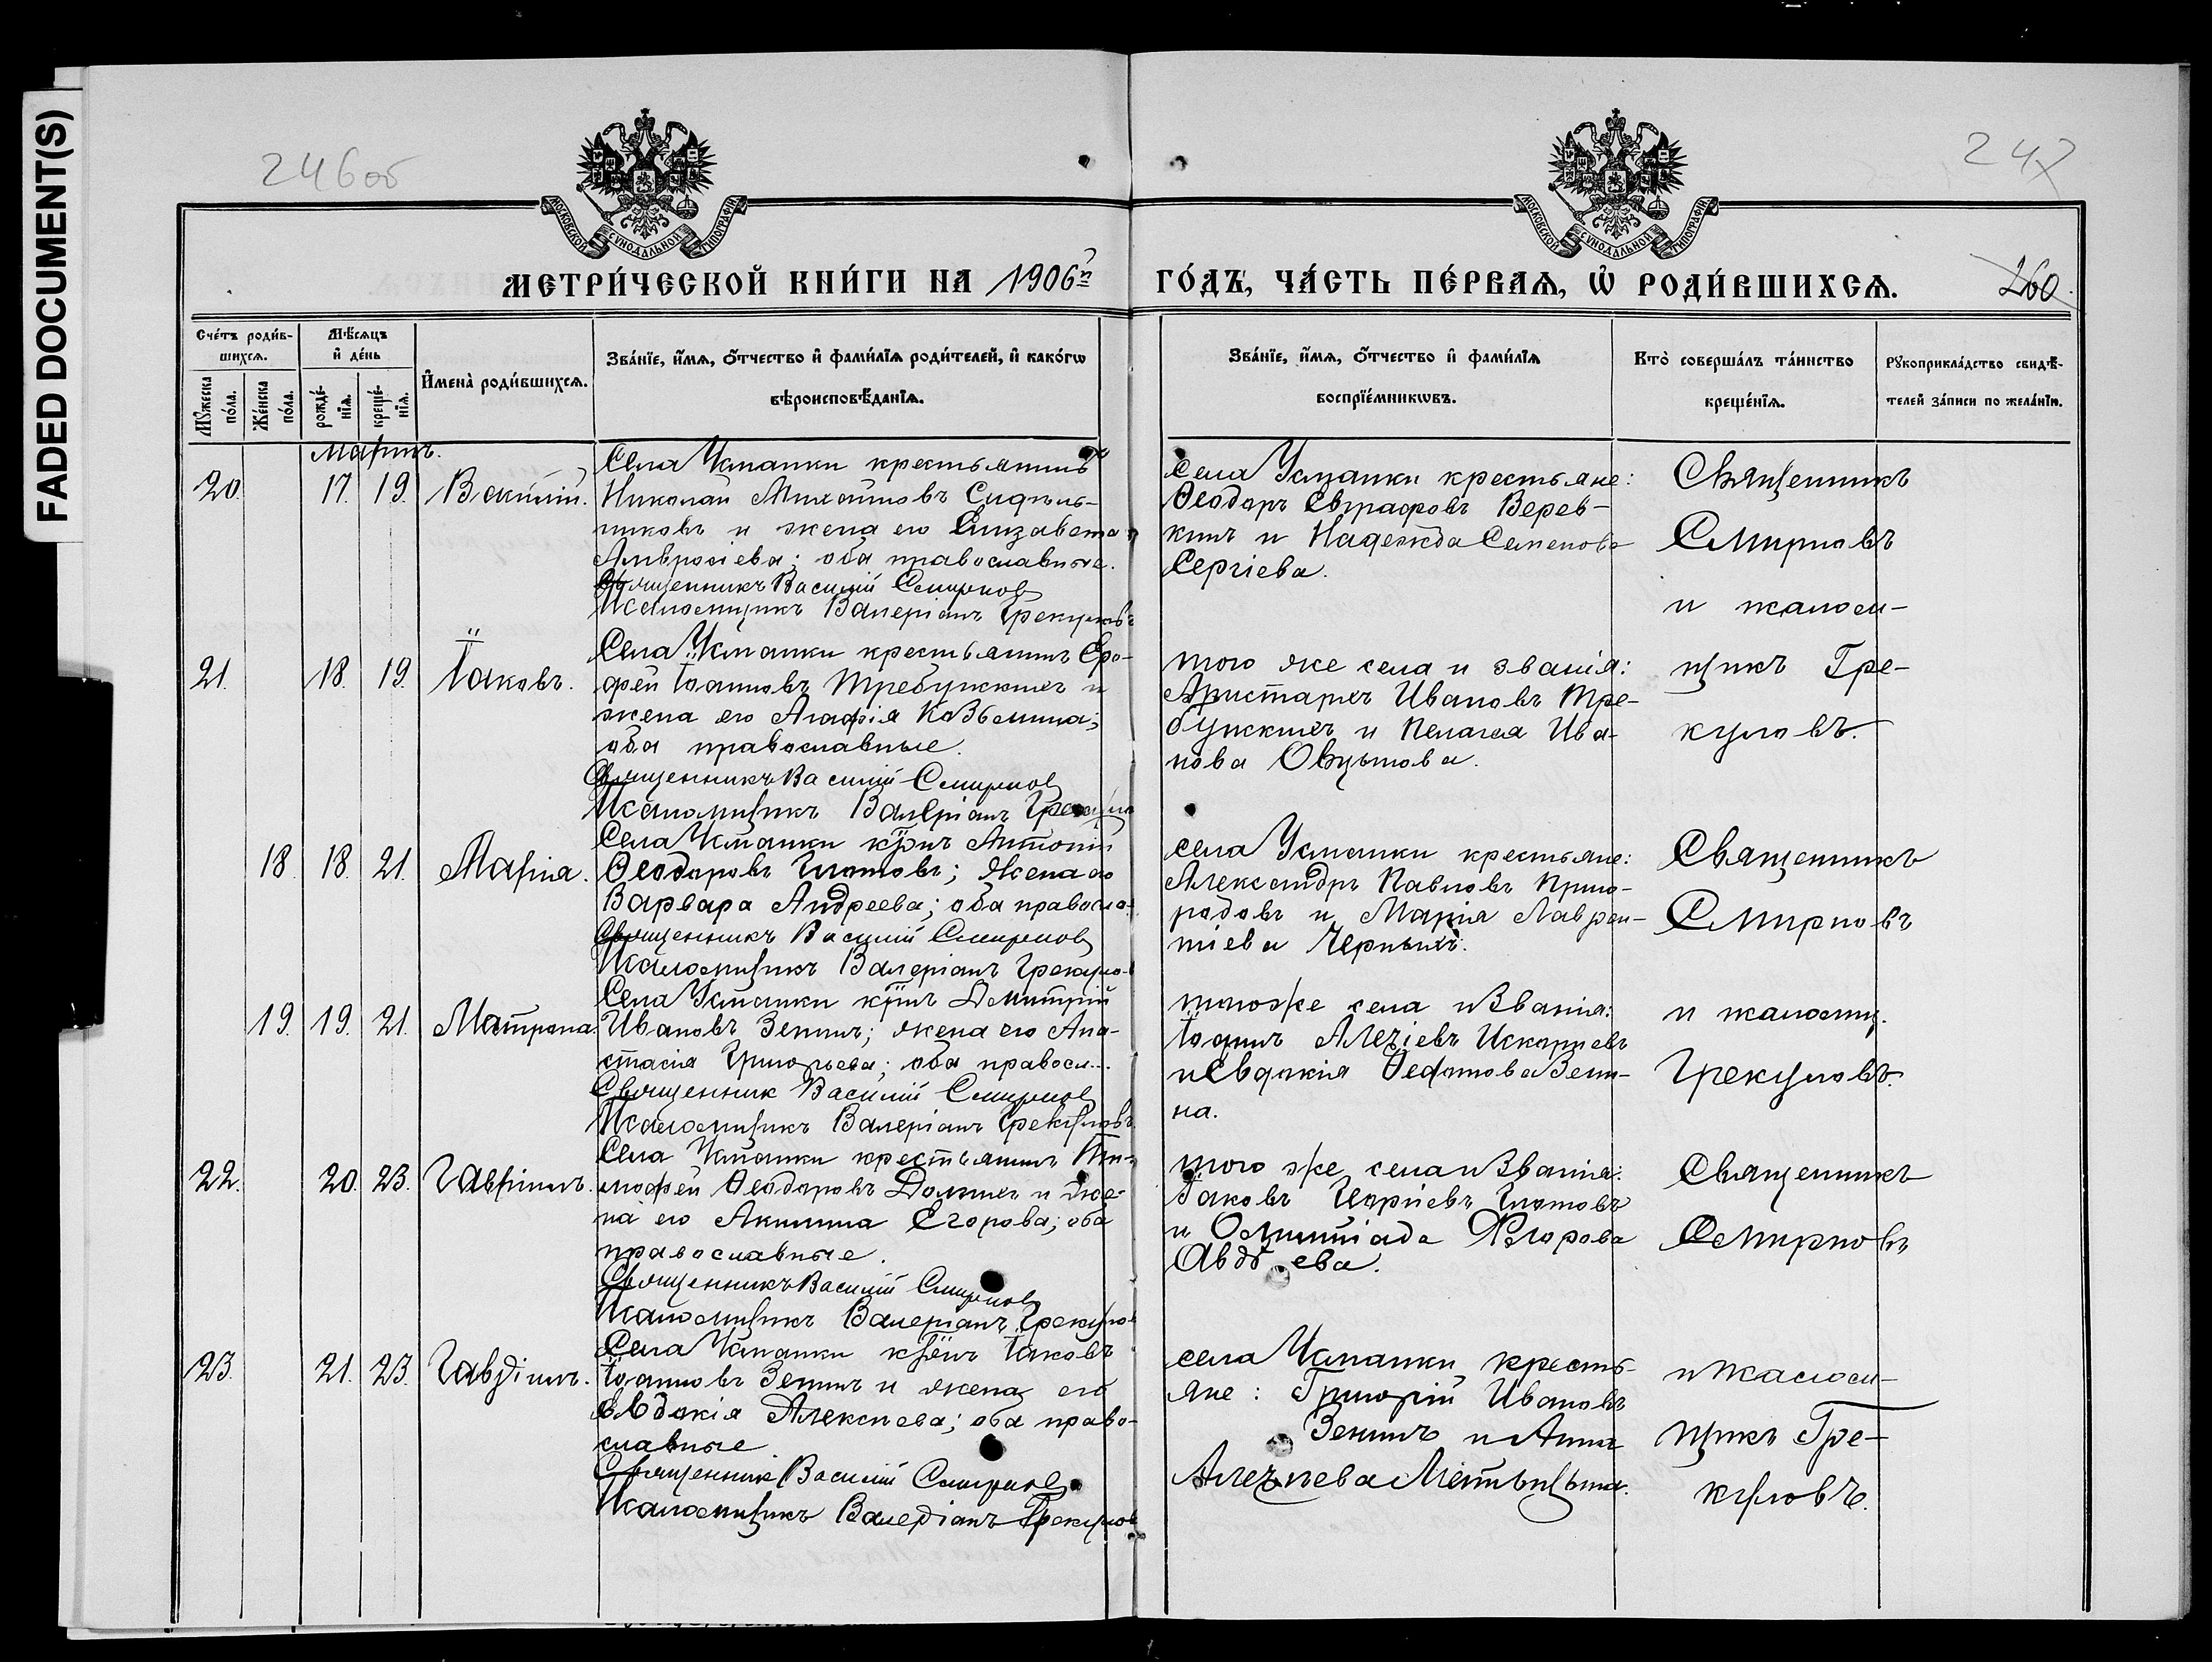 FADED DOCUMENT(S)
246об
247
МОСКОВСКОЙ СУНОДАЛЬНОЙ ТИПОГРАФІИ
МОСКОВСКОЙ СУНОДАЛЬНОЙ ТИПОГРАФІИ
МЕТРИ́ЧЕСКОЙ КНИ́ГИ НА 1906й ГО́ДЪ, ЧА́СТЬ ПЕ́РВАѦ, Ѽ РОДИ́ВШИХСѦ.
260
Сче́тъ роди́в-
шихсѧ.
Мѣ́сѧцъ
и де́нь
Мꙋ́жеска по́ла.
Же́нска по́ла.
рожде́-
нїѧ.
креще́-
нїѧ.
И҆мена̀ роди́вшихсѧ.
Зва́нїе, и҆́мѧ, ѻ҆́тчество и҆ фами́лїѧ роди́телей, и҆ како́гѡ
вѣроисповѣ́данїѧ.
Зва́нїе, и҆́мѧ, ѻ҆́тчество и҆ фами́лїѧ
воспрїе́мникѡвъ.
Кто̀ соверша́лъ та́инство
креще́нїѧ.
Рꙋкоприкла́дство свидѣ́-
телей за́писи по жела́нїю.
Мартъ.
20. 17. 19. Василій.
Села Усманки крестьянинъ
Николай Михайловъ Сидѣль-
никовъ и жена его Елизавета
Амвросіева; оба православные.
Священникъ Василій Смирнов
Псаломщикъ Валеріанъ Грекуловъ
Села Усманки крестьяне:
Ѳеодоръ Евграфовъ Верев-
кинъ и Надежда Семенова
Сергіева.
Священникъ
Смирновъ
и псаломщ-
21. 18. 19. Іаковъ.
Села Усманки крестьянинъ Еро-
фей Іоанновъ Требунскихъ и
жена его Агафія Козьмина;
оба православные.
Священникъ Василій Смирнов
Псаломщикъ Валеріанъ
того же села и званія:
Аристархъ Ивановъ Тре-
бунскихъ и Пелагея Ива-
нова
щикъ Гре-
куловъ.
18. 18. 21. Марія.
Села Усманки кр̃нъ Антоній
Ѳеодоровъ Глотовъ; жена его
Варвара Андреева; оба правосла.
Священникъ Василій Смирнов
Псаломщикъ Валеріанъ Грекулов
села Усманки крестьяне:
Александръ Павловъ
и Марія Лаврен-
тіева Черныхъ.
Священникъ
Смирновъ
19. 19. 21. Матрона.
Села Усманки кр̃нъ Димитрій
Ивановъ Зенинъ; жена его Ана-
стасія Григорьева; оба правосл...
Священник Василій Смирнов
Псаломщикъ Валеріанъ Грекуловъ
того же села и званія:
Іоаннъ
и Евдокія Зени-
на.
и псаломщ.
Грекуловъ.
22. 20. 23. Гавріилъ.
Села Усманки крестьянинъ Ти-
мофей Ѳеодоровъ Долгихъ и же-
на его Акилина Егорова; оба
православные.
Священникъ Василій Смирнов
Псаломщикъ Валеріанъ Грекулов
того же села и званія:
Іаковъ Глотовъ
и Олимпіада Егорова
Авдѣева.
Священникъ
Смирновъ
23. 21. 23. Гавріилъ.
Села Усманки Іаковъ
Іоанновъ Зенинъ и жена его
Евдокія Алексѣева; оба право-
славные
Священник Василій Смирнов
Псаломщикъ Валеріанъ Грекулов
села Усманки, кресть-
яне: Григорій Ивановъ
Зенинъ и Анна
и псалом-
щикъ Гре-
куловъ.